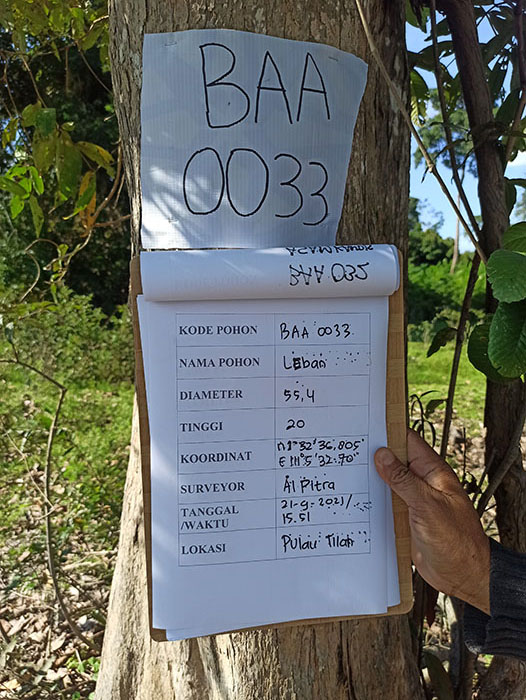 BAA
0033
BAA 032
KODE POHON BAA 0033
NAMA POHON Leban
DIAMETER 55,4
TINGGI 20
KOORDINAT n 1°32'36,805"
E 111°5'32.70"
SURVEYOR Al Pitra
TANGGAL 21-9-2021/
/WAKTU 15.51
LOKASI Pulau Tilah